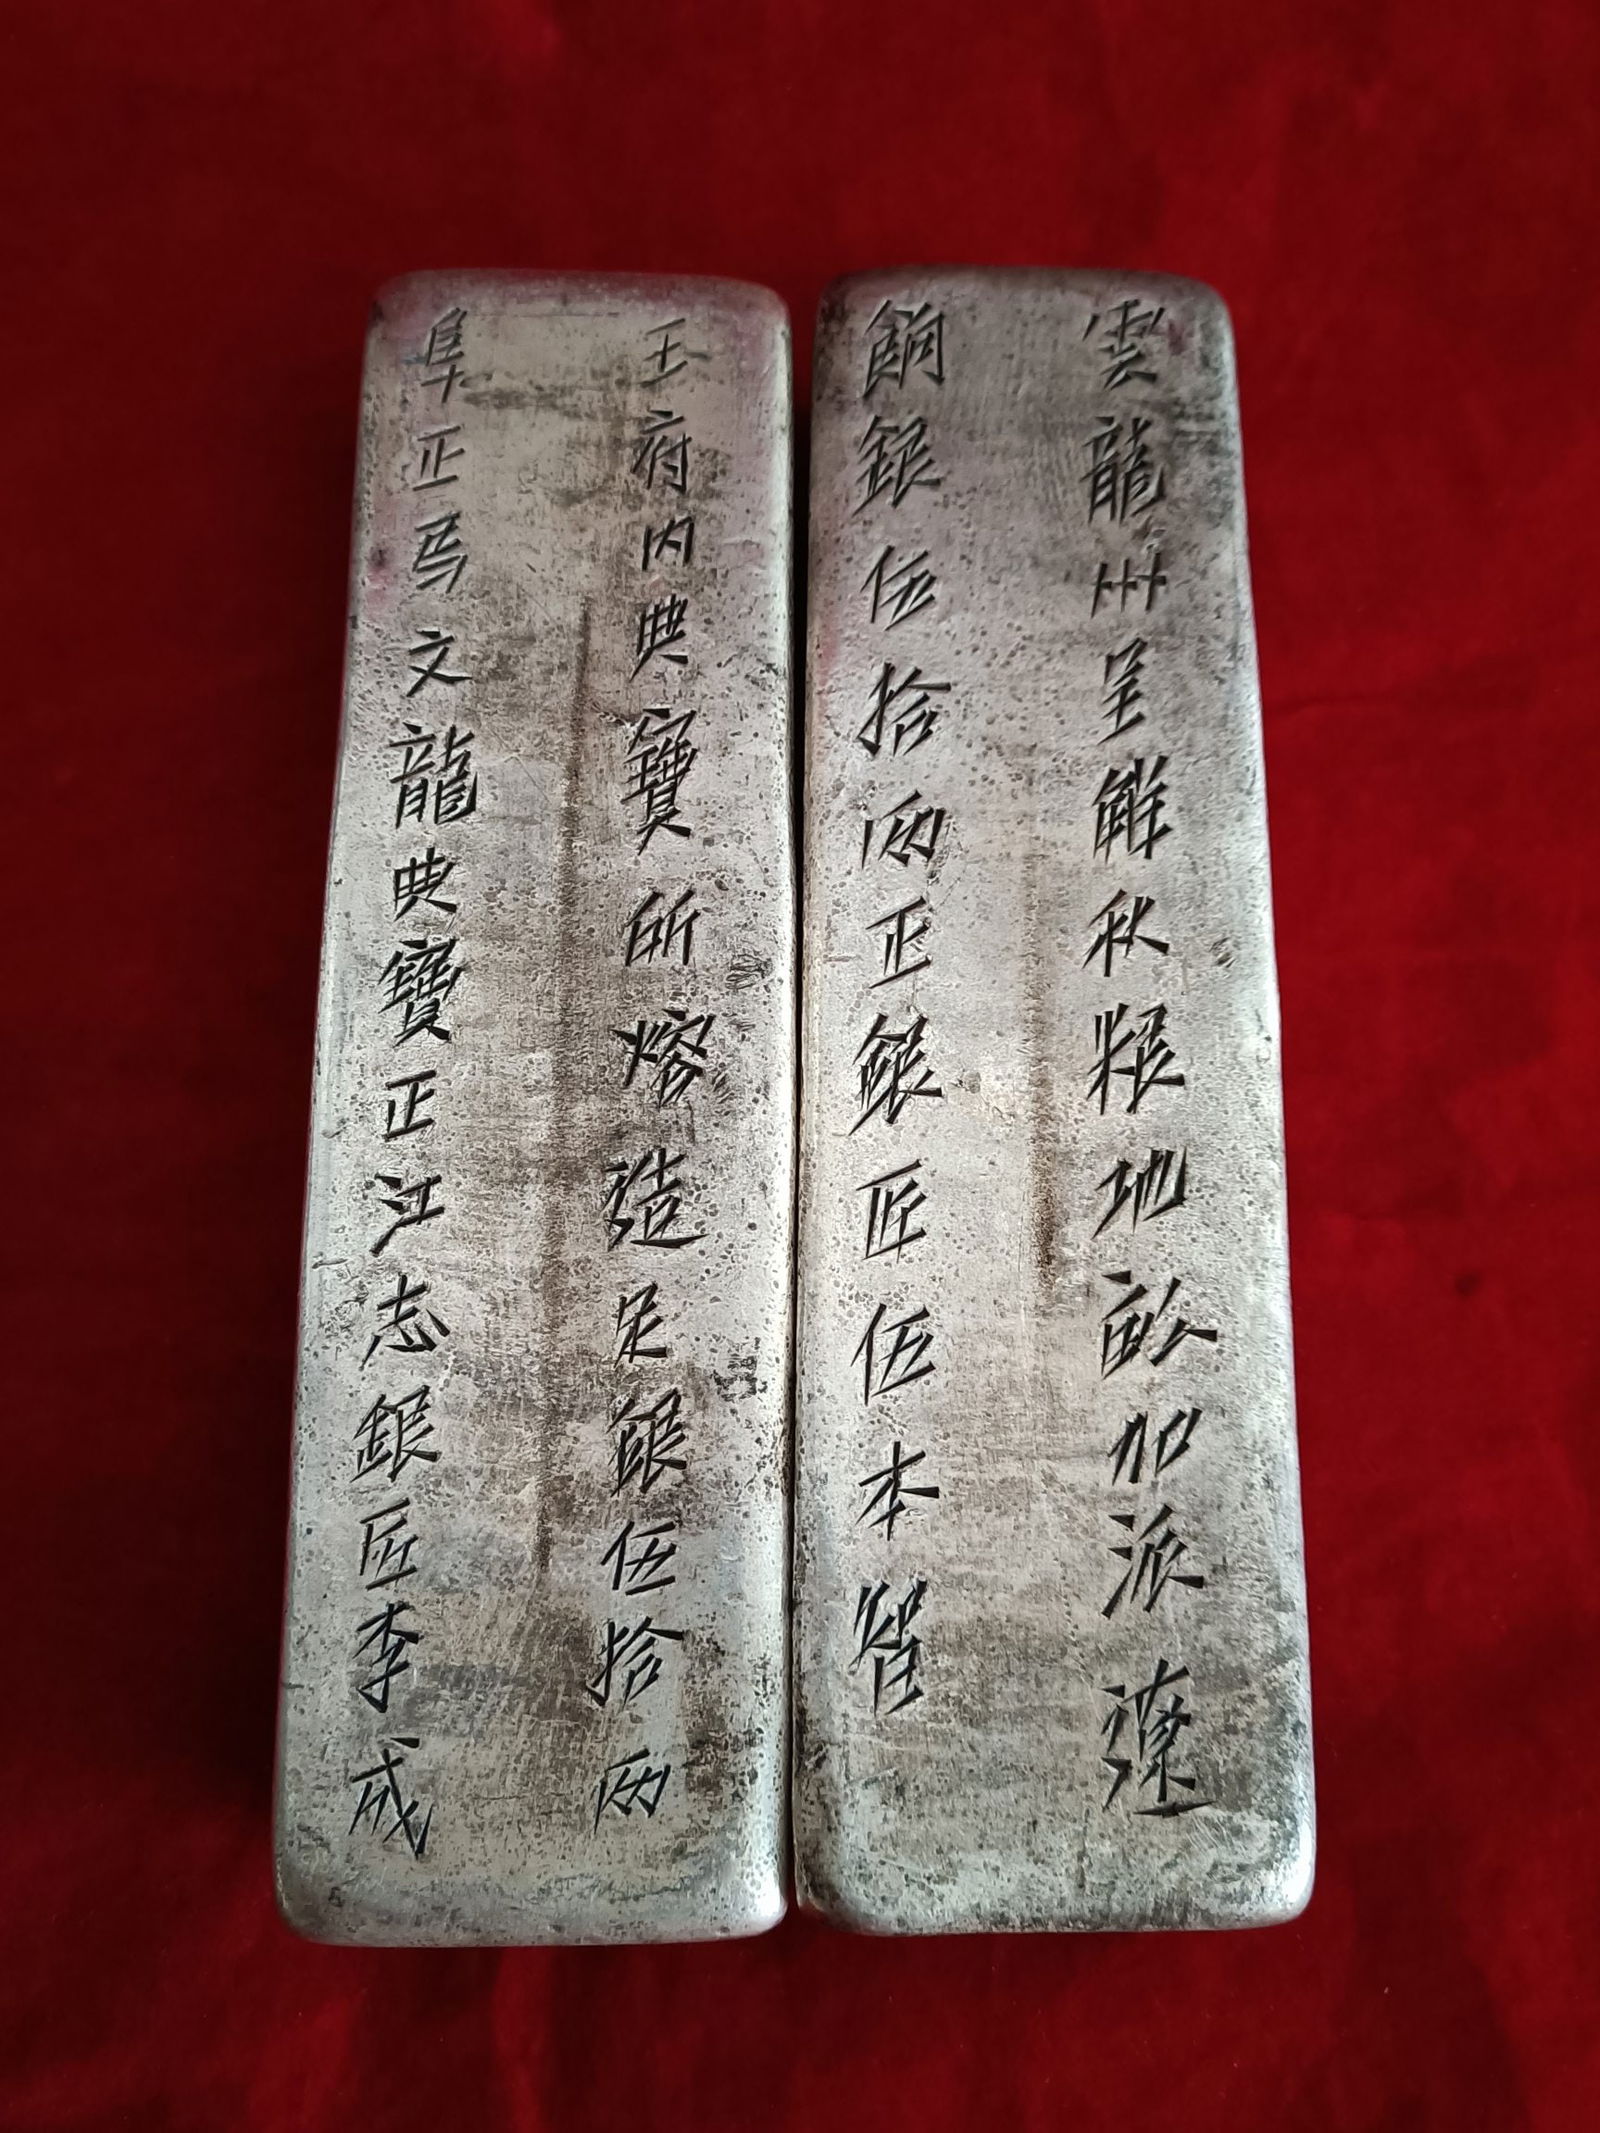 雲龍州呈解秋粮地畝加派遼
餉銀伍拾両正銀匠伍本智
王府内典寶所熔造足銀伍拾両
正 文龍典寶正江志銀匠李成